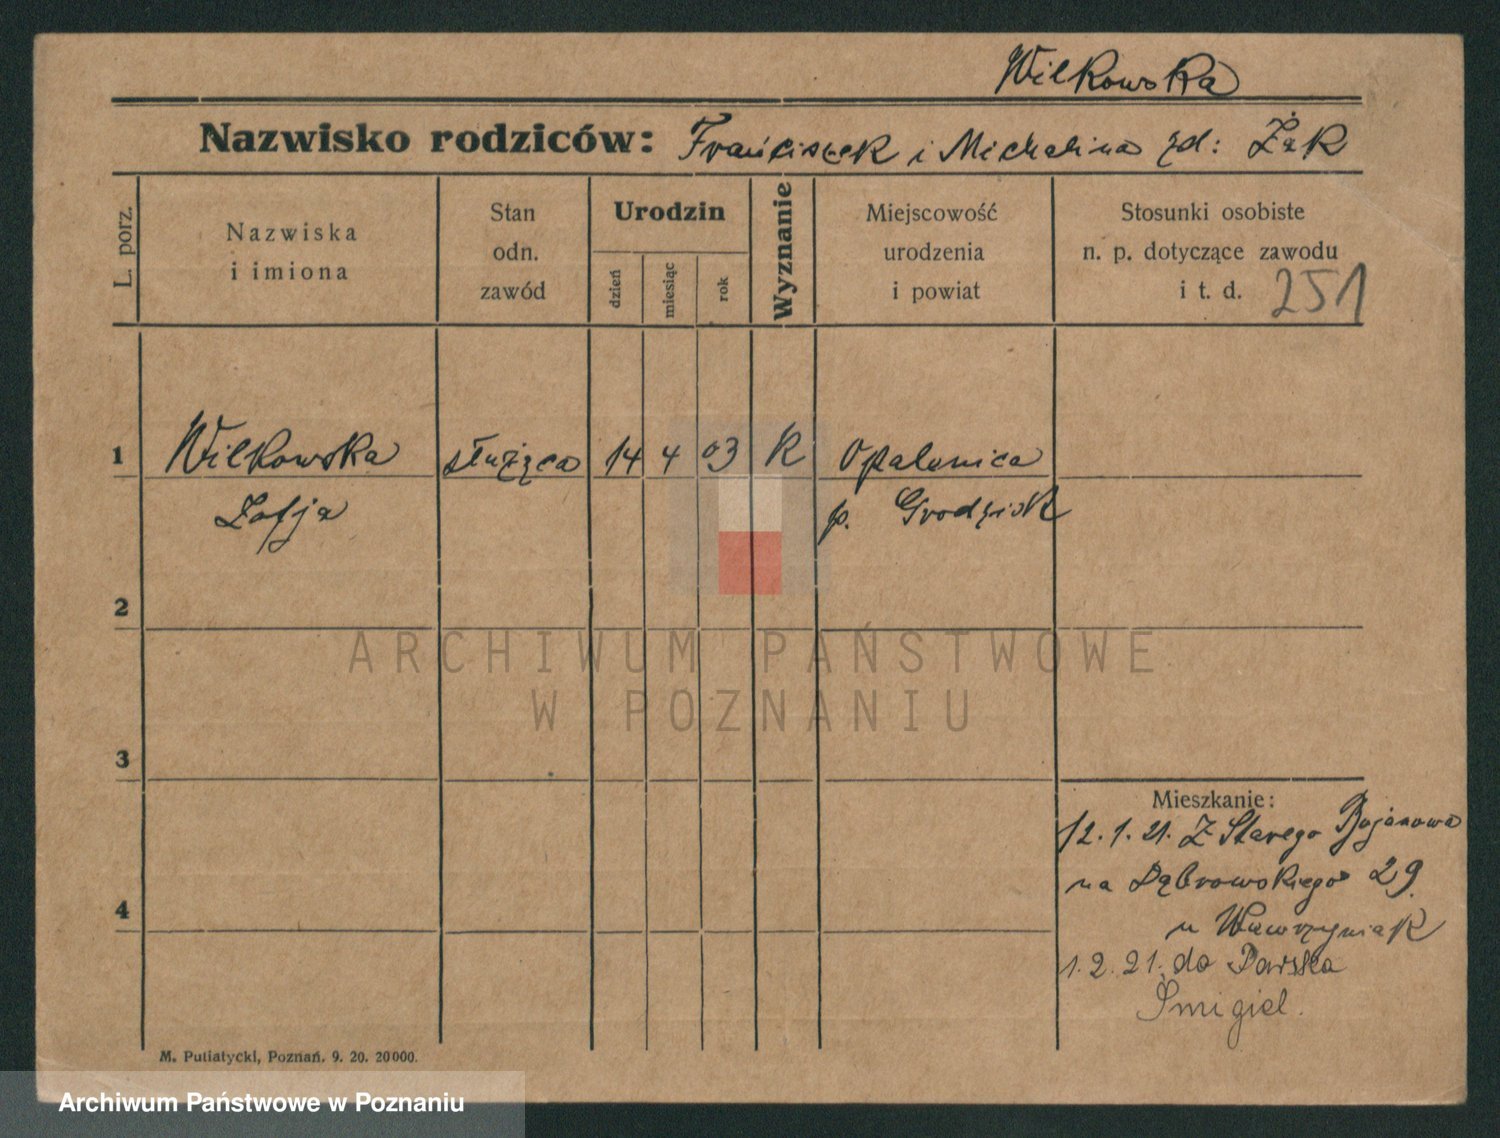 Wilkowska
Nazwisko rodziców: Franciszek i Michalina zd: Żak
L. porz.
Nazwiska
i imiona
Stan
odn.
zawód
Urodzin
dzień
miesiąc
rok
Wyznanie
Miejscowość
urodzenia
i powiat
Stosunki osobiste
n. p. dotyczące zawodu
i t. d.
251
1 Wilkowska służąca 14 4 03 K Opalenica
Zofja p. Grodzisk
2
3
4
Mieszkanie:
12.1.21. Z Starego Bojanowa
na Dąbrowskiego 29
u Wawrzyniak
1.2.21. do Parska
Śmigiel.
M. Putiatycki, Poznań. 9. 20. 20000.
ARCHIWUM PAŃSTWOWE
W POZNANIU
Archiwum Państwowe w Poznaniu